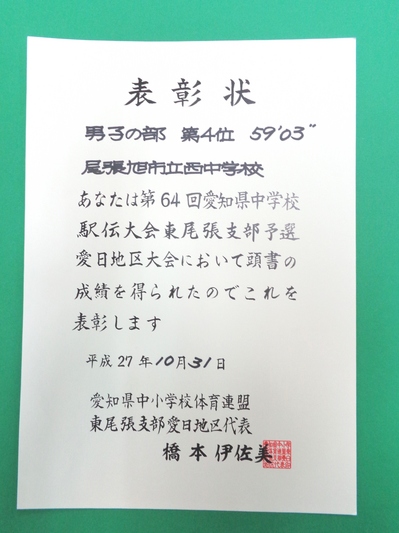 表彰状
男子の部 第4位 59'03"
尾張旭市立西中学校
あなたは第64回愛知県中学校
駅伝大会東尾張支部予選
愛日地区大会において頭書の
成績を得られたのでこれを
表彰します
平成27年10月31日
愛知県中小学校体育連盟
東尾張支部愛日地区代表
橋本伊佐美